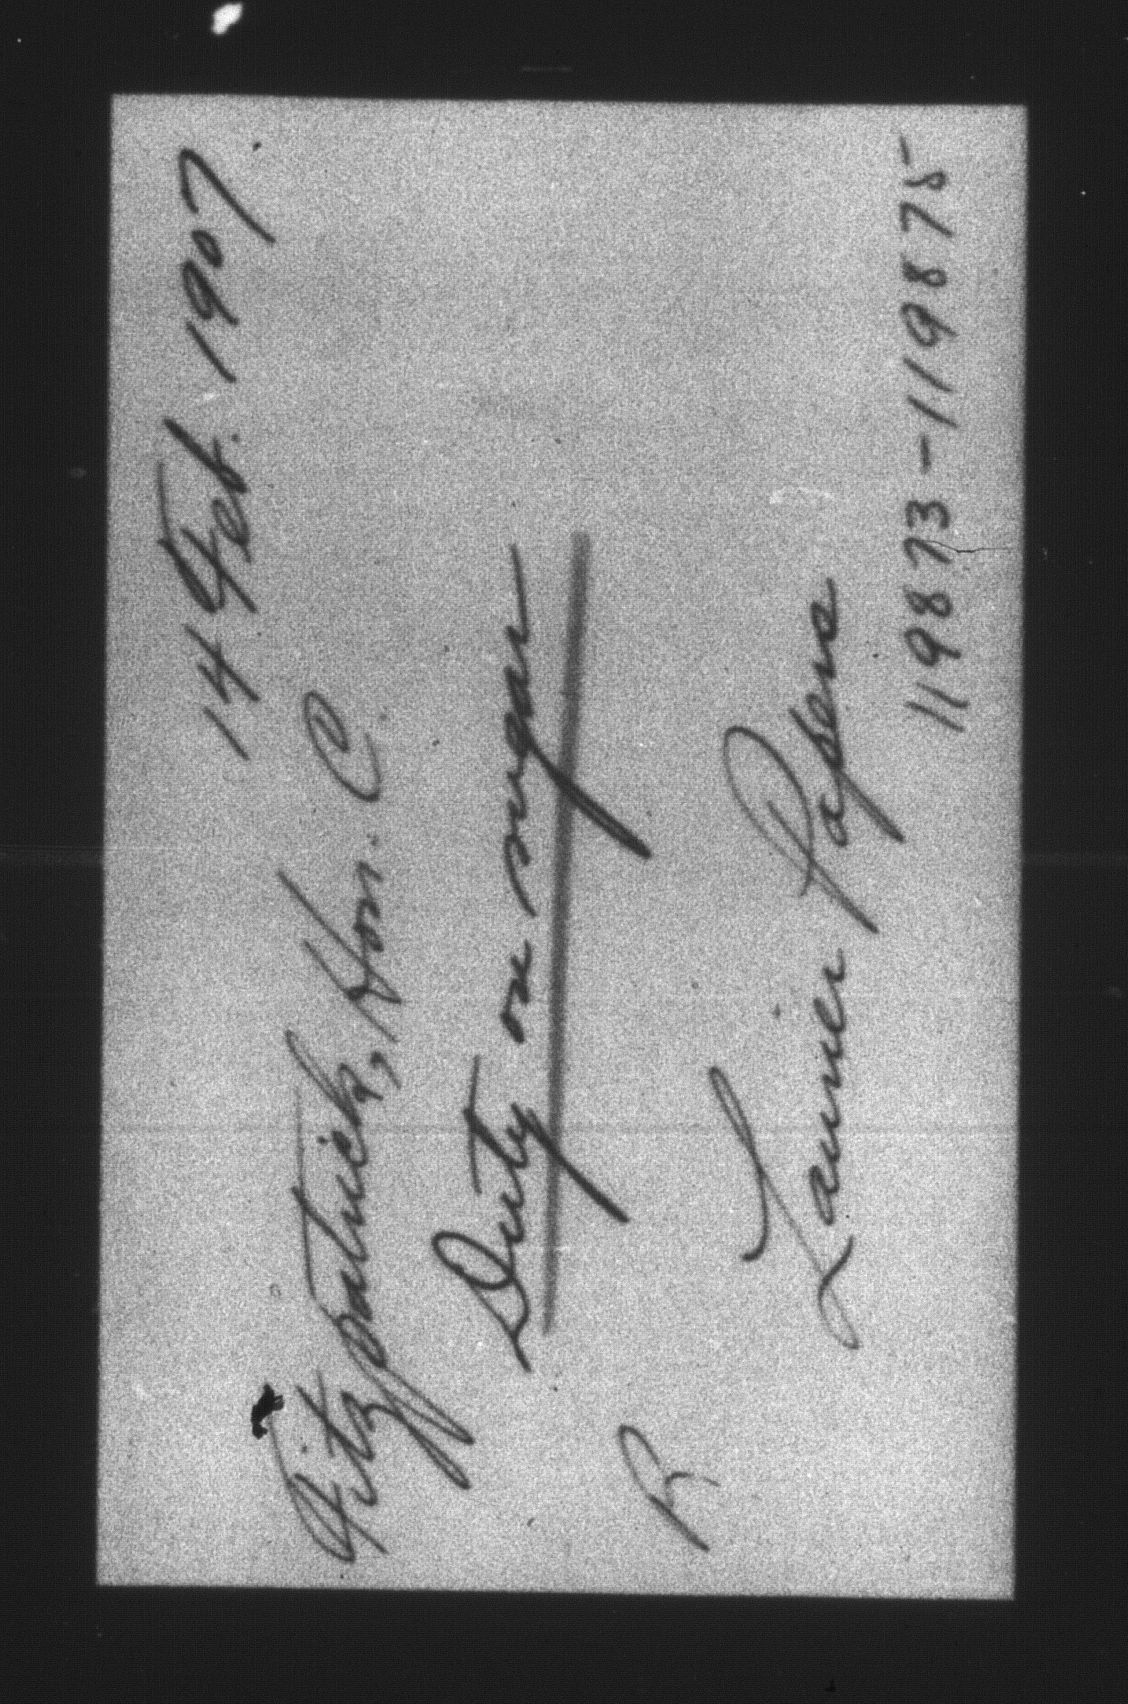 14 Feb. 1907.
Fitzpatrick, Hon. C.
Duty on sugar
R
Laurier Papers
119873-119875